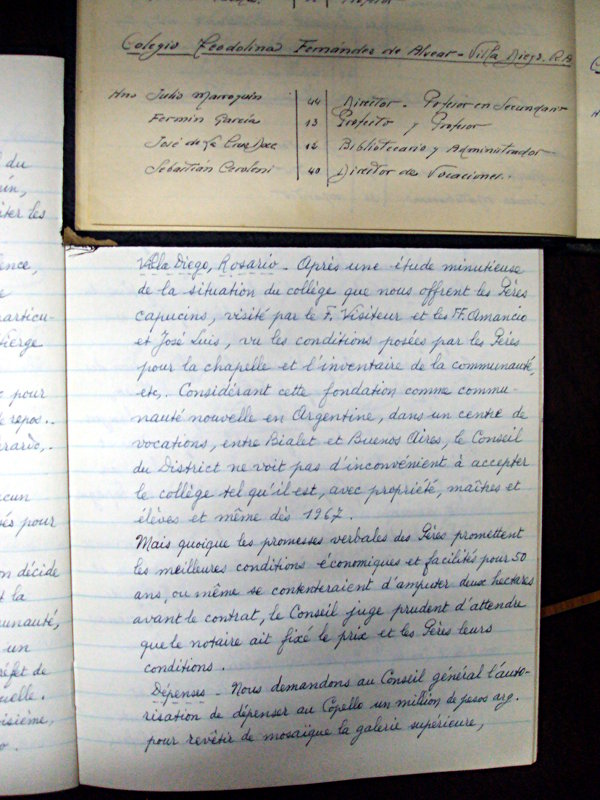 Colegio Teodolina Fernández de Alvear - Villa Diego. R.A
Hno Julio Marroquin 44 Director - Profesor en Secundar
Fermin García 13 Prefecto y Profesor
José de la Cruz 12 Bibliotecario y Administrador
Sebastián Ceroleni 40 Director de Vocaciones.
du
rin,
iter les
ence,
e
particu-
ierge
pour
repos..
rardo,.
cun
sés pour
on décide
t la
munauté,
un
réfet de
uelle.
isième,
o.
Villa Diego, Rosario - Après une étude minutieuse
de la situation du collège que nous offrent les Pères
capucins, visité par le F. Visiteur et les FF. Amancio
et José Luis, vu les conditions posées par les Pères
pour la chapelle et l'inventaire de la communauté,
etc,. Considérant cette fondation comme commu-
nauté nouvelle en Argentine, dans un centre de
vocations, entre Bialet et Buenos Aires, le Conseil
du District ne voit pas d'inconvénient à accepter
le collège tel qu'il est, avec propriété, maîtres et
élèves et même dès 1967.
Mais quoique les promesses verbales des Pères promettent
les meilleures conditions économiques et facilités pour 50
ans, ou même se contenteraient d'amputer deux hectares
avant le contrat, le Conseil juge prudent d'attendre
que le notaire ait fixé le prix et les Pères leurs
conditions.
Dépenses - Nous demandons au Conseil général l'auto-
risation de dépenser au Copello un million de pesos arg.
pour revêtir de mosaïque la galerie supérieure,